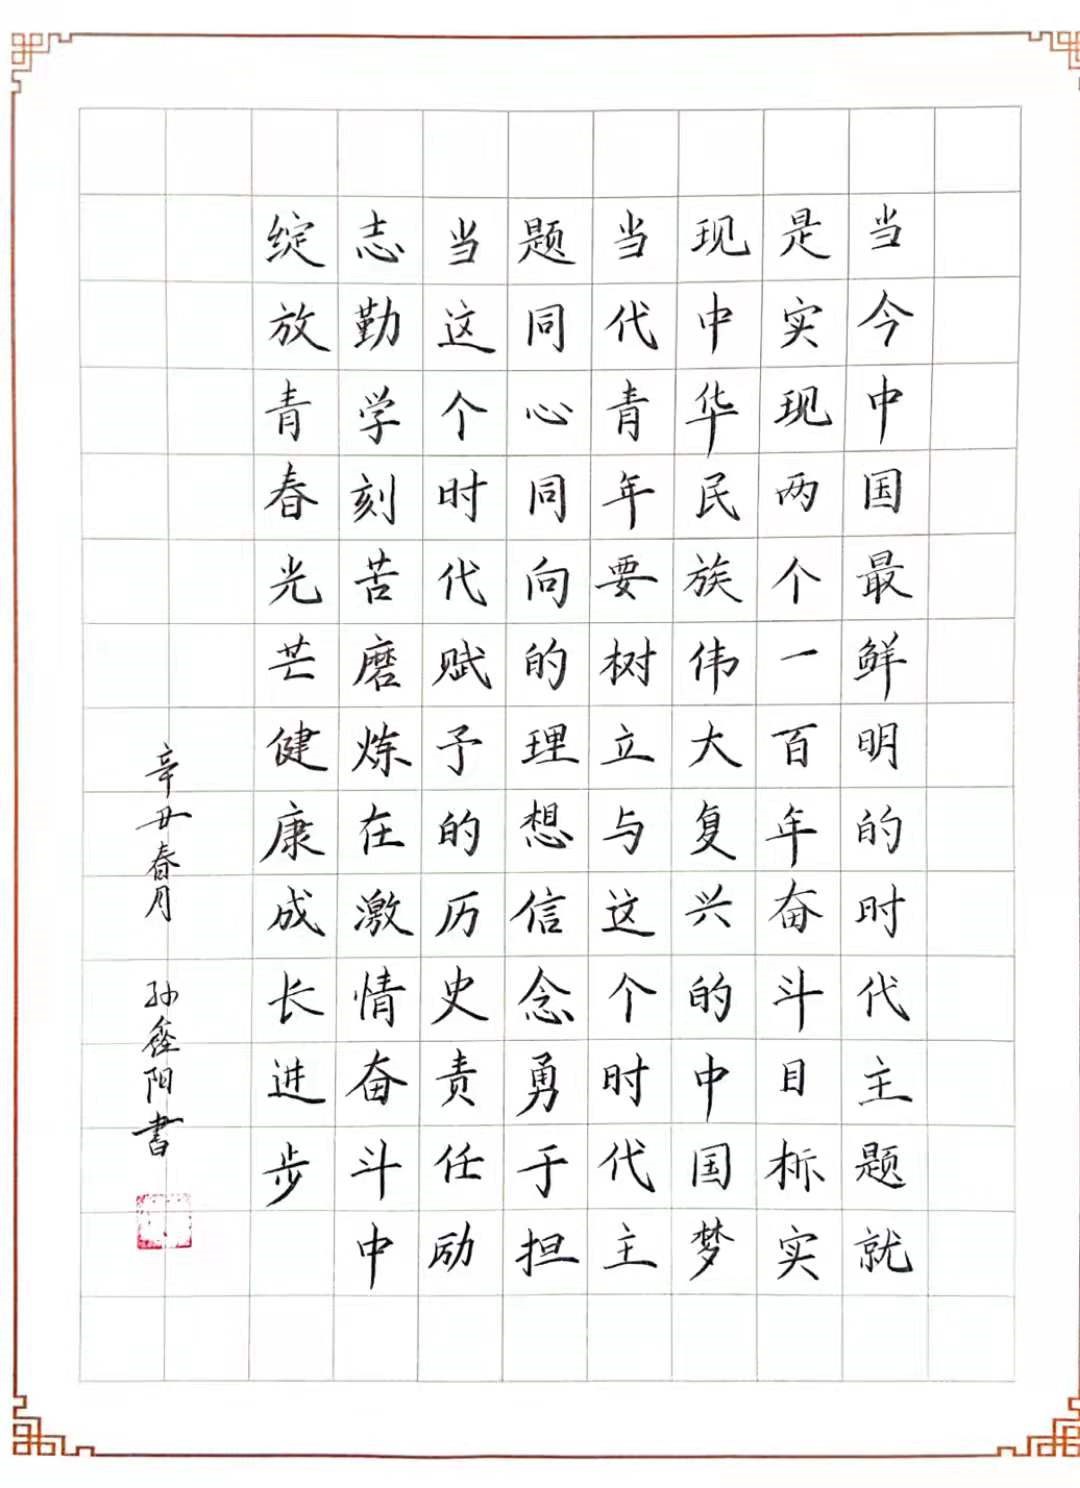 当今中国最鲜明的时代主题就
是实现两个一百年奋斗目标实
现中华民族伟大复兴的中国梦
当代青年要树立与这个时代主
题同心同向的理想信念勇于担
当这个时代赋予的历史责任励
志勤学刻苦磨炼在激情奋斗中
绽放青春光芒健康成长进步
辛丑春月 孙鑫阳書